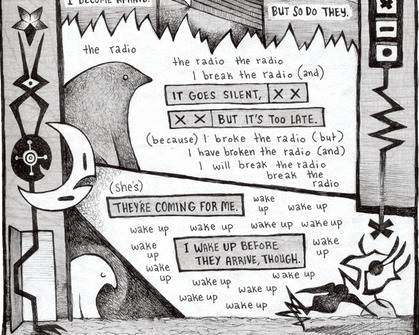 I BECOME AFRAID.
BUT SO DO THEY.
the radio
the radio the radio
I break the radio (and)
IT GOES SILENT, X X
X X BUT IT'S TOO LATE.
(because) I broke the radio (but)
I have broken the radio (and)
I will break the radio
break the
radio
(she's)
THEY'RE COMING FOR ME.
wake
up
wake up
wake up wake up wake up wake up
wake
up
I WAKE UP BEFORE
THEY ARRIVE, THOUGH.
wake
up
wake
up
wake up
wake up
wake up
wake up
wake up